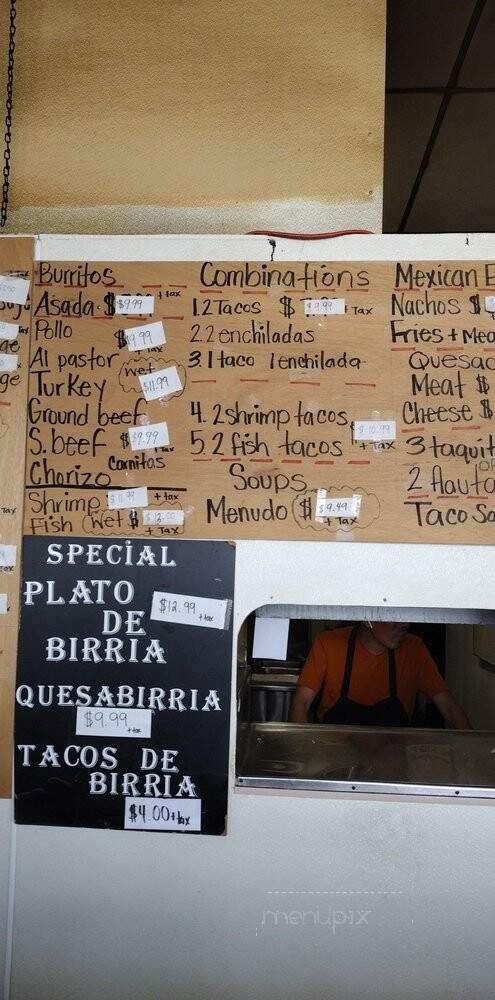 Burritos
Asada $ $9.99 + tax
Pollo $9.99
+ tax
Al pastor wet
Turkey $11.99
Ground beef
S. beef $ $9.99
Carnitas
Chorizo
Shrimp + tax
Fish (Wet $ $12.00
+ Tax
Combinations
1.2 Tacos $ $9.99 Tax
2.2 enchiladas
3.1 taco 1 enchilada
4. 2 shrimp tacos
5. 2 fish tacos $10.99
+ Tax
Soups
Menudo ($ $9.49
+ Tax
Mexican
Nachos $
Fries + Mea
Quesad
Meat $
Cheese $
3 taquit
or
2 flauta
Taco Sa
SPECIAL
PLATO
$12.99 + tax
DE
BIRRIA
QUESABIRRIA
$9.99
+ tax
TACOS DE
BIRRIA
$4.00 + tax
menupix